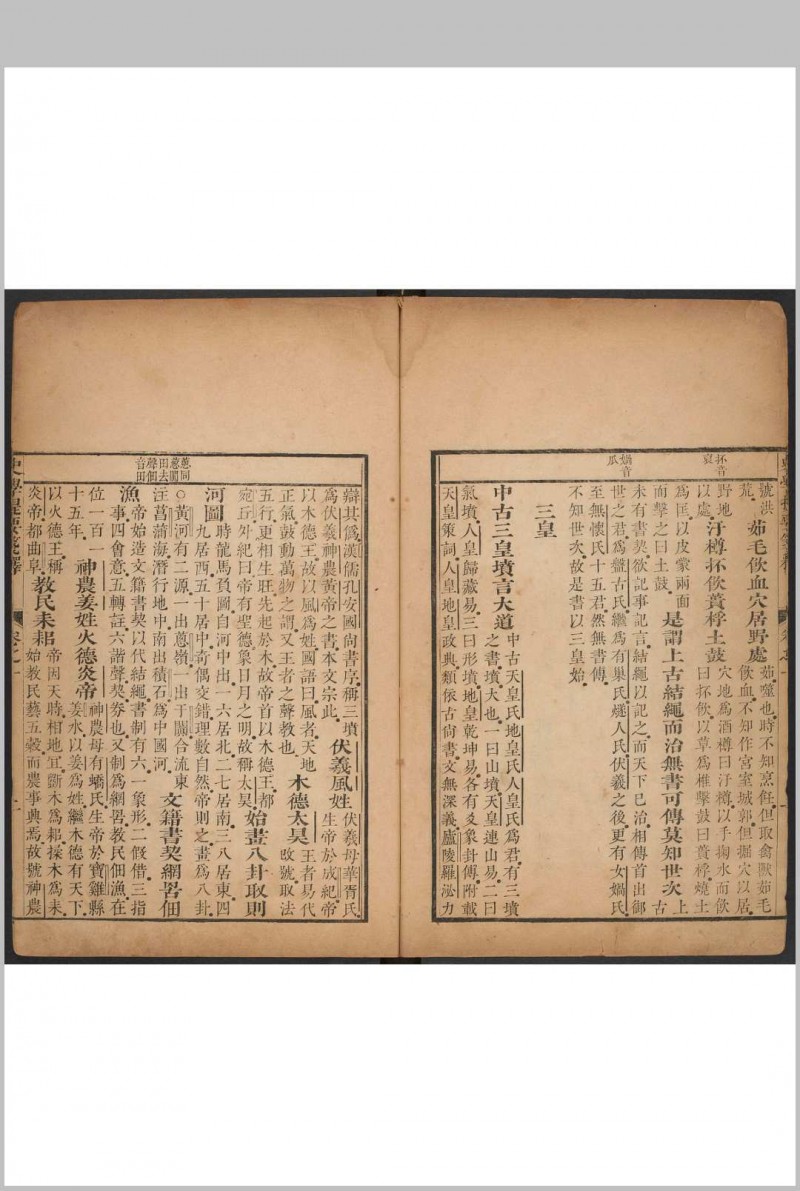 抔音裒
媧音瓜
號洪荒茹毛飲血穴居野處茹噬也時不知烹飪但取禽獸茹毛飲血不知作宮室城郭但掘穴以居
野地以處汙樽抔飲蕢桴土鼓穴地爲酒樽曰汙樽以手掬水而飲曰抔飲以草爲椎擊鼓曰蕢桴燒土
爲匡以皮蒙兩面而擊之曰土鼓是謂上古結繩而治無書可傳莫知世次上古
未有書契欲記事記言結繩以記之而天下已治相傳首出御
世之君爲盤古氏繼爲有巢氏燧人氏伏羲之後更有女媧氏
至無懷氏十五君然無書傳
不知世次故是書以三皇始
三皇
中古三皇墳言大道中古天皇氏地皇氏人皇氏爲君有三墳之書墳大也一曰山墳天皇連山易二曰
氣墳人皇歸藏易三曰形墳地皇乾坤易各有爻象卦傳附載
天皇策詞人皇地皇政典類依古尚書文無深義廬陵羅泌力
蔥同葱
闐田去聲
佃音田
辯其爲漢儒孔安國尚書序稱三墳爲伏羲神農黃帝之書本文宗此伏羲風姓伏羲母華胥氏生帝於成紀帝
以木德王故以風爲姓國語曰風者天地正氣鼓動萬物之謂又王者之聲教也木德太昊王者易代改號取法
五行更相生旺先起於木故帝首以木德王都宛丘外紀曰帝有聖德象日月之明故稱太昊始畫八卦取則
河圖時龍馬負圖自河中出一六居北二七居南三八居東四九居西五十居中奇偶交錯理數自然帝則之畫爲八卦
○黃河有二源一出蔥嶺一出于闐合流東注菖蒲海潛行地中南出積石爲中國河文籍書契網罟佃
漁帝始造文籍書契以代結繩書制有六一象形二假借三指事四會意五轉註六諧聲契券也又制爲網罟教民佃漁在
位一百一十五年神農姜姓火德炎帝神農母有蟜氏生帝於寶雞縣姜水以姜爲姓繼木德有天下
以火德王稱炎帝都曲阜教民耒耜帝因天時相地宜斲木爲耜揉木爲耒始教民藝五穀而農事興焉故號神農
史學提要箋釋 卷之一